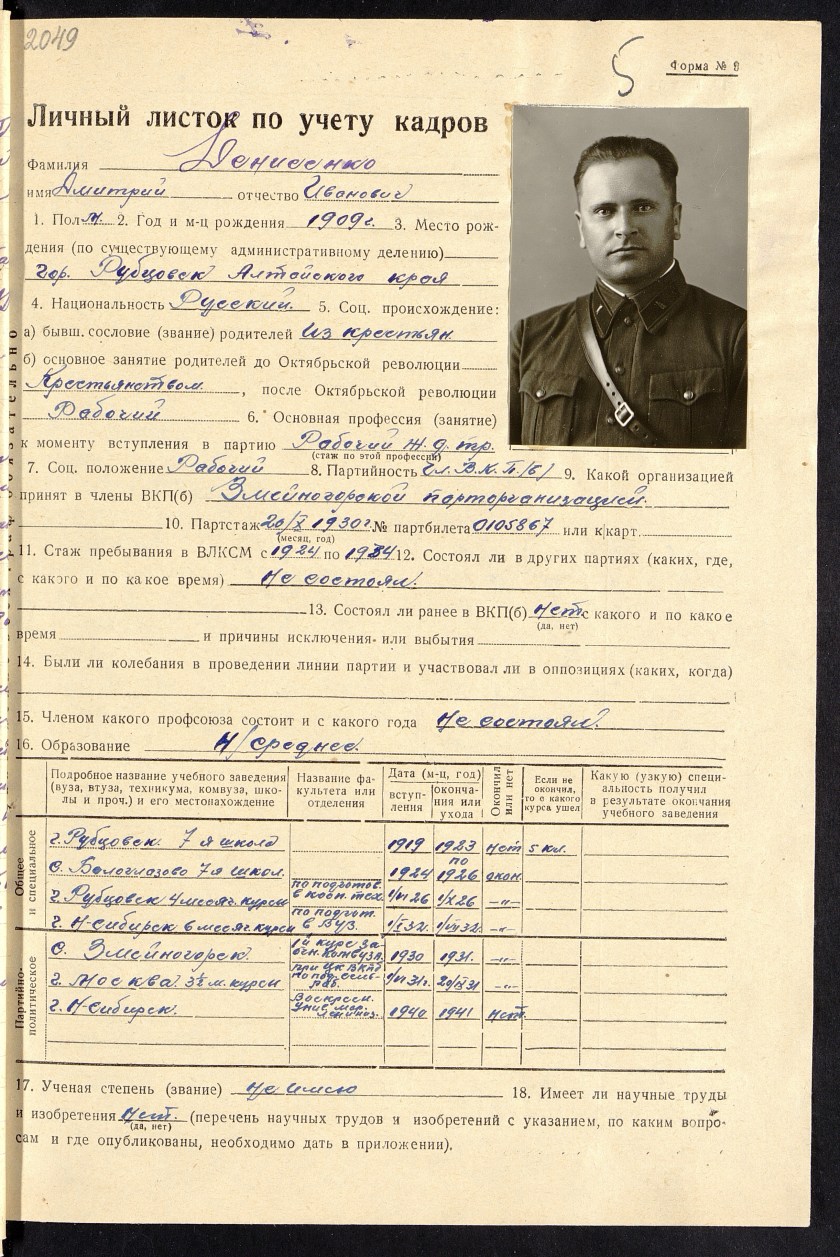 2049
5
Форма № 3
Личный листок по учету кадров
Фамилия Денисенко
имя Дмитрий отчество Иванович
1. Пол м. 2. Год и м-ц рождения 1909 г. 3. Место рож-
дения (по существующему административному делению)
гор. Рубцовск Алтайского края
4. Национальность Русский. 5. Соц. происхождение:
а) бывш. сословие (звание) родителей Из крестьян
б) основное занятие родителей до Октябрьской революции
Крестьянством, после Октябрьской революции
Рабочий 6. Основная профессия (занятие)
к моменту вступления в партию Рабочий ж.д. тр.
(стаж по этой профессии)
7. Соц. положение Рабочий 8. Партийность Чл. В.К.П./б/ 9. Какой организацией
принят в члены ВКП(б) Змеиногорской парторганизацией.
10. Партстаж 20/X 1930 г. № партбилета 0105867 или к/карт.
(месяц, год)
11. Стаж пребывания в ВЛКСМ с 1924 по 1934 12. Состоял ли в других партиях (каких, где,
с какого и по какое время) Не состоял.
13. Состоял ли ранее в ВКП(б) Нет с какого и по какое
(да, нет)
время и причины исключения или выбытия
14. Были ли колебания в проведении линии партии и участвовал ли в оппозициях (каких, когда)
15. Членом какого профсоюза состоит и с какого года Не состоял.
16. Образование Н/среднее.
Подробное название учебного заведения (вуза, втуза, техникума, комвуза, шко- лы и проч.) и его местонахождение
Название фа- культета или отделения
Дата (м-ц, год)
вступ- ления
оконча- ния или ухода
Окончил или нет
Если не окончил, то с какого курса ушел
Какую (узкую) специ- альность получил в результате окончания учебного заведения
Общее и специальное
г. Рубцовск 7я школа 1919 1923 нет 5 кл.
с. Белоглазово 7я школ. 1924 по 1926 окон.
г. Рубцовск 4 месяч. курсы по подготов. в кооп. тех. 1/VI 26 1/X 26 -"-
г. Н-Сибирск 6 месяч. курсы по подгот. в ВУЗ. -"-
Партийно- политическое
с. Змеиногорск. 1й курс за- очн. комвуза. 1930 1931. -"-
г. Москва 3½ м. курсы при ЦК ВКПб 20/IX 31 -"-
г. Н-Сибирск. Воскресн. 1940 1941 нет.
17. Ученая степень (звание) не имею 18. Имеет ли научные труды
и изобретения нет. (перечень научных трудов и изобретений с указанием, по каким вопро-
(да, нет)
сам и где опубликованы, необходимо дать в приложении).